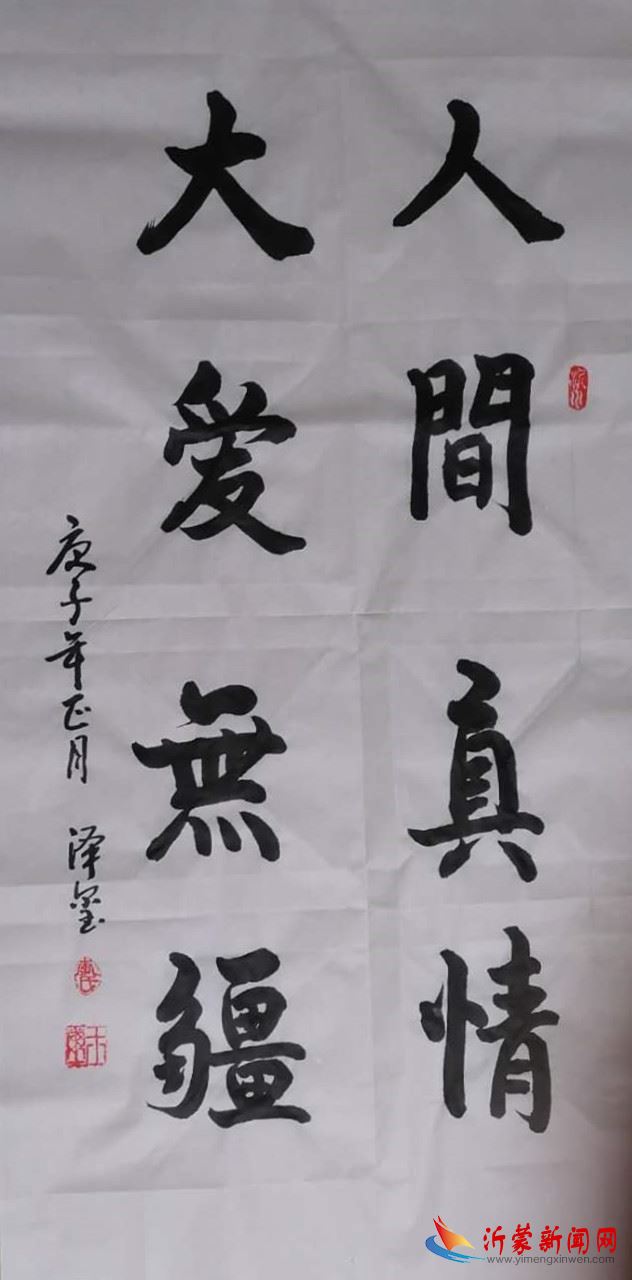 人間真情
大爱無疆
庚子年正月 泽玺
沂蒙新闻网
www.yimengxinwen.com